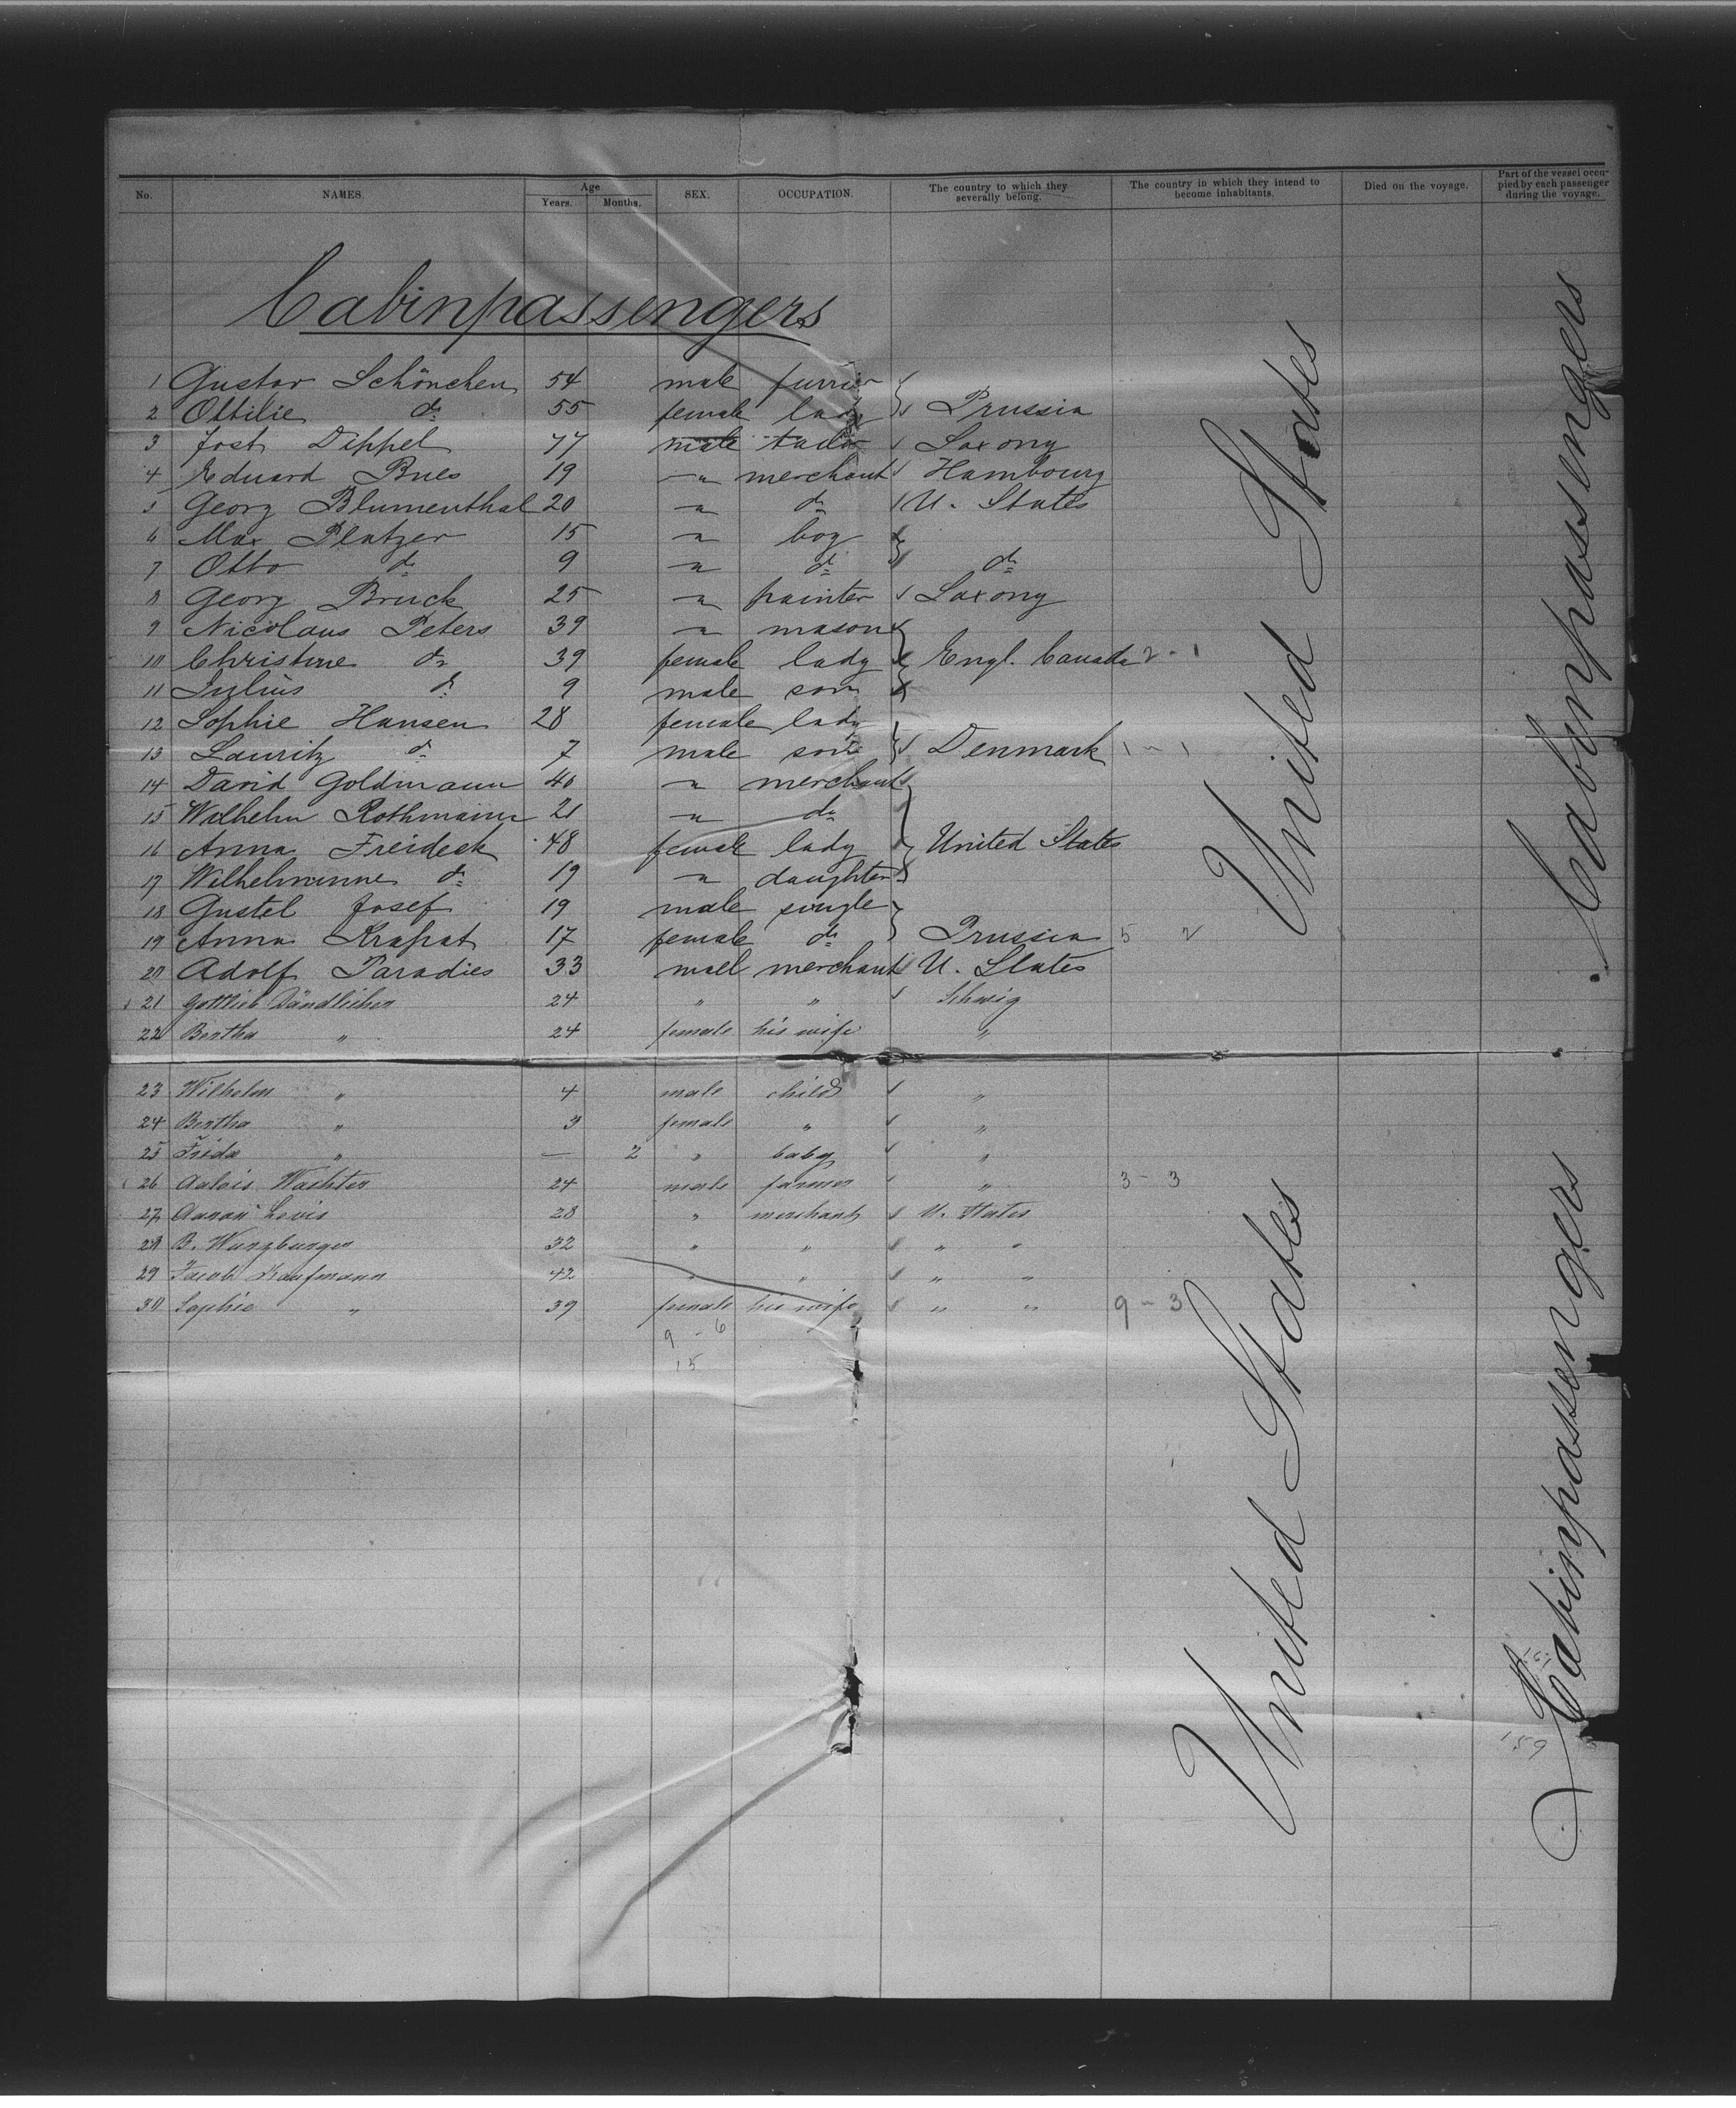 No. NAMES. Age Years. Months. SEX. OCCUPATION. The country to which they severally belong. The country in which they intend to become inhabitants. Died on the voyage. Part of the vessel occupied by each passenger during the voyage.
Cabinpassengers
1 Gustav Schönchen 54 male furrier
2 Ottilie do 55 female lady Prussia
3 Jost Dippel 77 male tailor Saxony
4 Eduard Bues 19 " merchant Hambourg
5 Georg Blumenthal 20 " do U. States
6 Max Platzer 15 " boy
7 Otto do 9 " do do
8 Georg Bruck 25 " painter Saxony
9 Nicolaus Peters 39 " mason
10 Christine do 39 female lady Engl. Canada 2 - 1
11 Julius do 9 male son
12 Sophie Hansen 28 female lady
13 Lauritz do 7 male son Denmark 1 - 1
14 David Goldmann 40 " merchant
15 Wilhelm Rothmann 21 " do
16 Anna Freideck 48 female lady United States
17 Wilhelmine do 19 " daughter
18 Gustel Josef 19 male single
19 Anna Krapat 17 female do Prussia 5 2
20 Adolf Paradies 33 mael merchant U. States
21 Gottlieb Dändlicher 24 " " Schweiz
22 Bertha " 24 female his wife "
23 Wilhelm " 4 male child "
24 Bertha " 3 female " "
25 Frida " — 2 " baby "
26 Aalois Wachter 24 male farmer " 3 - 3
27 Aaron Levis 28 " merchant U. States
28 B. Wurzburger 32 " " " "
29 Jacob Kaufmann 42 " " " "
30 Sophie " 39 female his wife " " 9 - 3
9 - 6
15
United States
United States
Cabinpassengers
Cabinpassengers
159